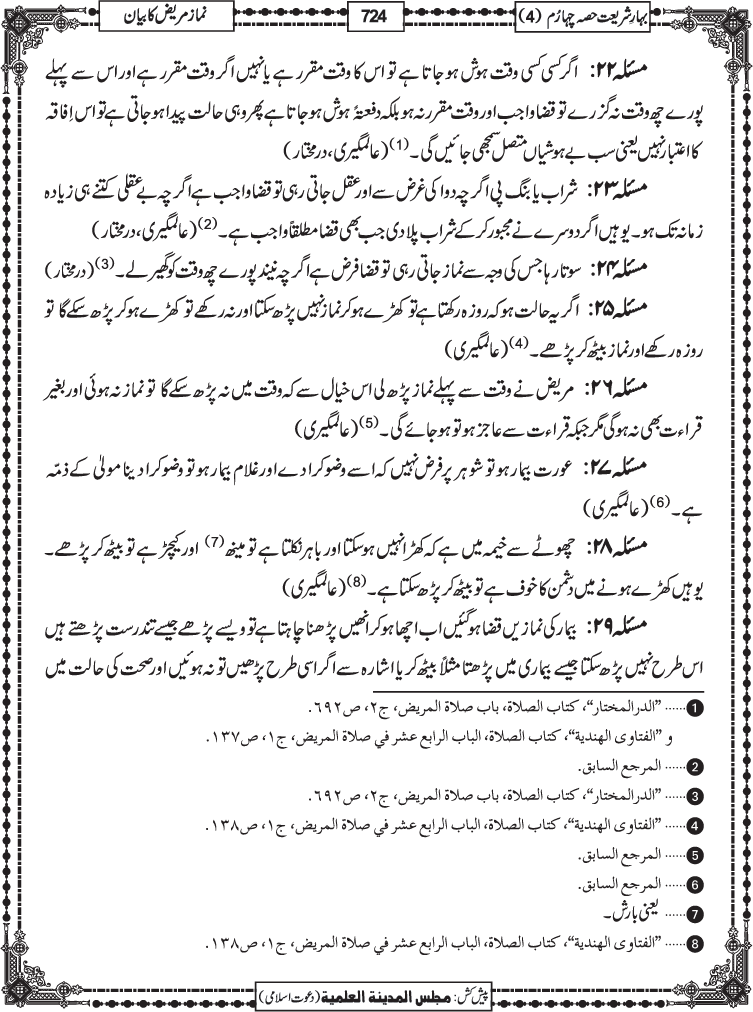 بہارِ شریعت حصہ چہارم (4)
724
نماز مریض کا بیان
مسئلہ ۲۲: اگر کسی کسی وقت ہوش ہو جاتا ہے تو اس کا وقت مقرر ہے یا نہیں اگر وقت مقرر ہے اور اس سے پہلے
پورے چھ وقت نہ گزرے تو قضا واجب اور وقت مقرر نہ ہو بلکہ دفعۃً ہوش ہو جاتا ہے پھر وہی حالت پیدا ہو جاتی ہے تو اس اِفاقہ
کا اعتبار نہیں یعنی سب بے ہوشیاں متصل سمجھی جائیں گی۔ (1) (عالمگیری، درمختار)
مسئلہ ۲۳: شراب یا بنگ پی اگرچہ دوا کی غرض سے اور عقل جاتی رہی تو قضا واجب ہے اگرچہ بے عقلی کتنے ہی زیادہ
زمانہ تک ہو۔ یوہیں اگر دوسرے نے مجبور کر کے شراب پلا دی جب بھی قضا مطلقاً واجب ہے۔ (2) (عالمگیری، درمختار)
مسئلہ ۲۴: سوتا رہا جس کی وجہ سے نماز جاتی رہی تو قضا فرض ہے اگرچہ نیند پورے چھ وقت کو گھیر لے۔ (3) (درمختار)
مسئلہ ۲۵: اگر یہ حالت ہو کہ روزہ رکھتا ہے تو کھڑے ہو کر نماز نہیں پڑھ سکتا اور نہ رکھے تو کھڑے ہو کر پڑھ سکے گا تو
روزہ رکھے اور نماز بیٹھ کر پڑھے۔ (4) (عالمگیری)
مسئلہ ۲۶: مریض نے وقت سے پہلے نماز پڑھ لی اس خیال سے کہ وقت میں نہ پڑھ سکے گا تو نماز نہ ہوئی اور بغیر
قراءت بھی نہ ہوگی مگر جبکہ قراءت سے عاجز ہو تو ہو جائے گی۔ (5) (عالمگیری)
مسئلہ ۲۷: عورت بیمار ہو تو شوہر پر فرض نہیں کہ اسے وضو کرا دے اور غلام بیمار ہو تو وضو کرا دینا مولیٰ کے ذمّہ
ہے۔ (6) (عالمگیری)
مسئلہ ۲۸: چھوٹے سے خیمہ میں ہے کہ کھڑا نہیں ہو سکتا اور باہر نکلتا ہے تو مینھ (7) اور کیچڑ ہے تو بیٹھ کر پڑھے۔
یوہیں کھڑے ہونے میں دشمن کا خوف ہے تو بیٹھ کر پڑھ سکتا ہے۔ (8) (عالمگیری)
مسئلہ ۲۹: بیمار کی نمازیں قضا ہو گئیں اب اچھا ہو کر انھیں پڑھنا چاہتا ہے تو ویسے پڑھے جیسے تندرست پڑھتے ہیں
اس طرح نہیں پڑھ سکتا جیسے بیماری میں پڑھتا مثلاً بیٹھ کر یا اشارہ سے اگر اسی طرح پڑھیں تو نہ ہوئیں اور صحت کی حالت میں
1 ...... ”الدرالمختار“، کتاب الصلاۃ، باب صلاۃ المریض، ج۲، ص۶۹۲.
و ”الفتاوی الھندیة“، کتاب الصلاۃ، الباب الرابع عشر في صلاة المریض، ج۱، ص۱۳۷.
2 ...... المرجع السابق.
3 ...... ”الدرالمختار“، کتاب الصلاۃ، باب صلاۃ المریض، ج۲، ص۶۹۲.
4 ...... ”الفتاوی الھندیة“، کتاب الصلاۃ، الباب الرابع عشر في صلاة المریض، ج۱، ص۱۳۸.
5 ...... المرجع السابق.
6 ...... المرجع السابق.
7 ...... یعنی بارش۔
8 ...... ”الفتاوی الھندیة“، کتاب الصلاۃ، الباب الرابع عشر في صلاة المریض، ج۱، ص۱۳۸.
پیش کش: مجلس المدینة العلمیة (دعوت اسلامی)